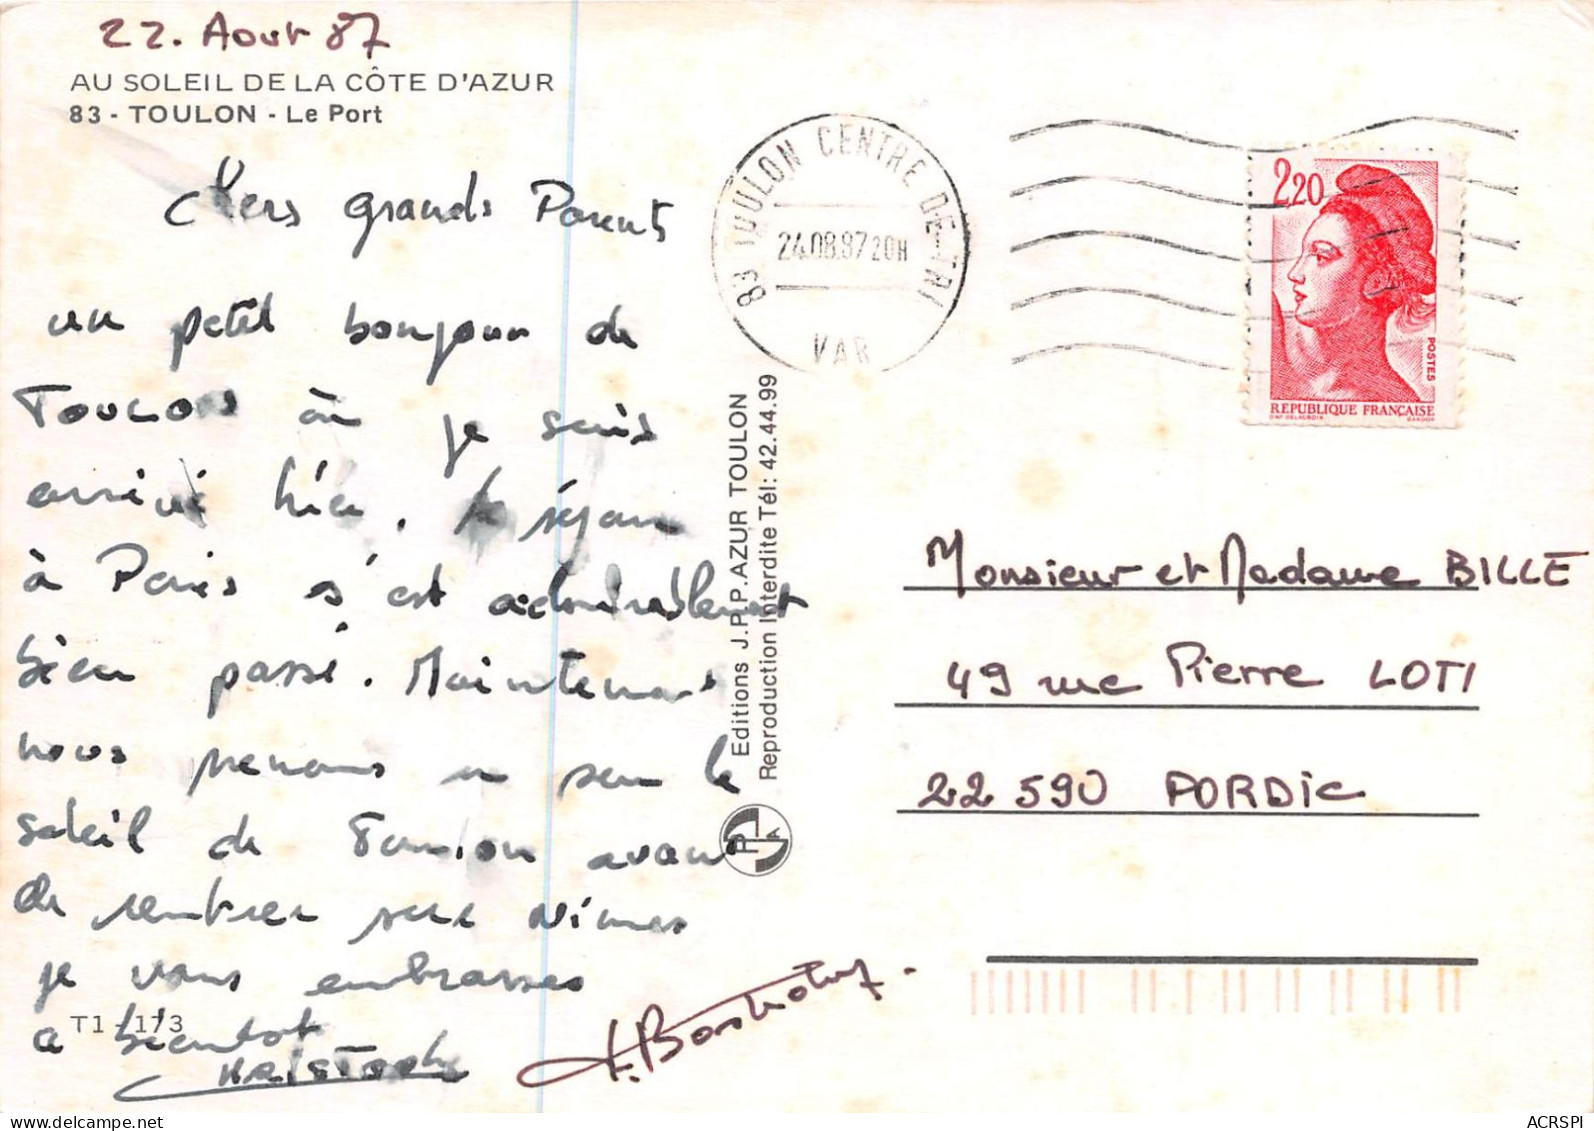 22. Aout 87
AU SOLEIL DE LA CÔTE D'AZUR
83 - TOULON - Le Port
Chers grands Parents
un petit bonjour de
TOULON où je suis
arrivé hier. le séjour
à Paris s'est admirablement
bien passé. Maintenant
nous prenons un peu le
soleil de Toulon avant
de rentrer sur Nîmes
je vous embrasses
a bientot
CHRISTOPHE
T1 - 173
Editions J.P.P.AZUR TOULON
Reproduction Interdite Tél: 42.44.99
83 TOULON CENTRE DE TRI
24.08.87 20H
VAR
2,20
POSTES
REPUBLIQUE FRANÇAISE
D'AP. DELACROIX GANDON
Monsieur et Madame BILLE
49 rue Pierre LOTI
22 590 PORDIC
www.delcampe.net
ACRSPI